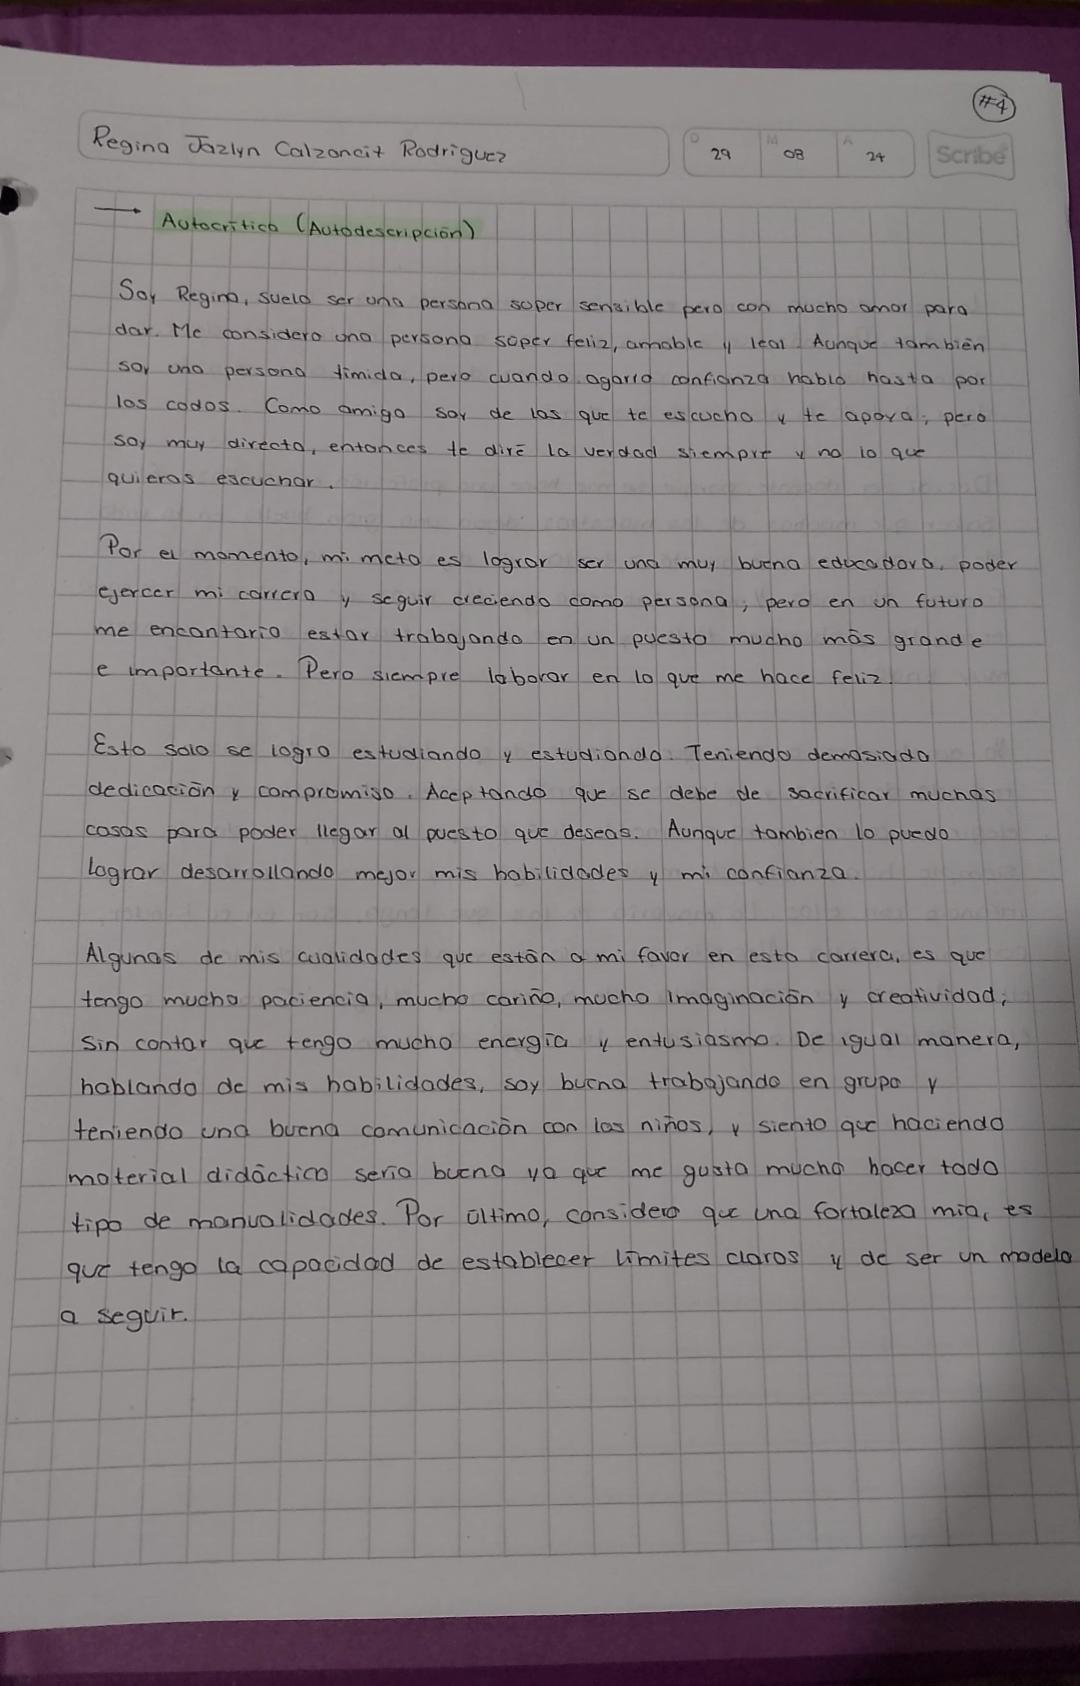 #4
Regina Jazlyn Calzoncit Rodríguez
D 29 M 08 A 24 Scribe
→ Autocrítica (Autodescripción)
Soy Regina, suelo ser una persona super sensible pero con mucho amor para
dar. Me considero una persona super feliz, amable y leal. Aunque también
soy una persona tímida, pero cuando agarro confianza hablo hasta por
los codos. Como amiga soy de las que te escucha y te apoya, pero
soy muy directa, entonces te diré la verdad siempre y no lo que
quieras escuchar.
Por el momento, mi meta es lograr ser una muy buena educadora, poder
ejercer mi carrera y seguir creciendo como persona, pero en un futuro
me encantaría estar trabajando en un puesto mucho más grande
e importante. Pero siempre laborar en lo que me hace feliz.
Esto solo se logra estudiando y estudiando. Teniendo demasiada
dedicación y compromiso. Aceptando que se debe de sacrificar muchas
cosas para poder llegar al puesto que deseas. Aunque tambien lo puedo
lograr desarrollando mejor mis habilidades y mi confianza.
Algunas de mis cualidades que están a mi favor en esta carrera, es que
tengo mucha paciencia, mucho cariño, mucha imaginación y creatividad,
Sin contar que tengo mucha energía y entusiasmo. De igual manera,
hablando de mis habilidades, soy buena trabajando en grupo y
teniendo una buena comunicación con los niños, y siento que haciendo
material didáctico sería buena ya que me gusta mucho hacer todo
tipo de manualidades. Por último, considero que una fortaleza mía, es
que tengo la capacidad de establecer límites claros y de ser un modelo
a seguir.